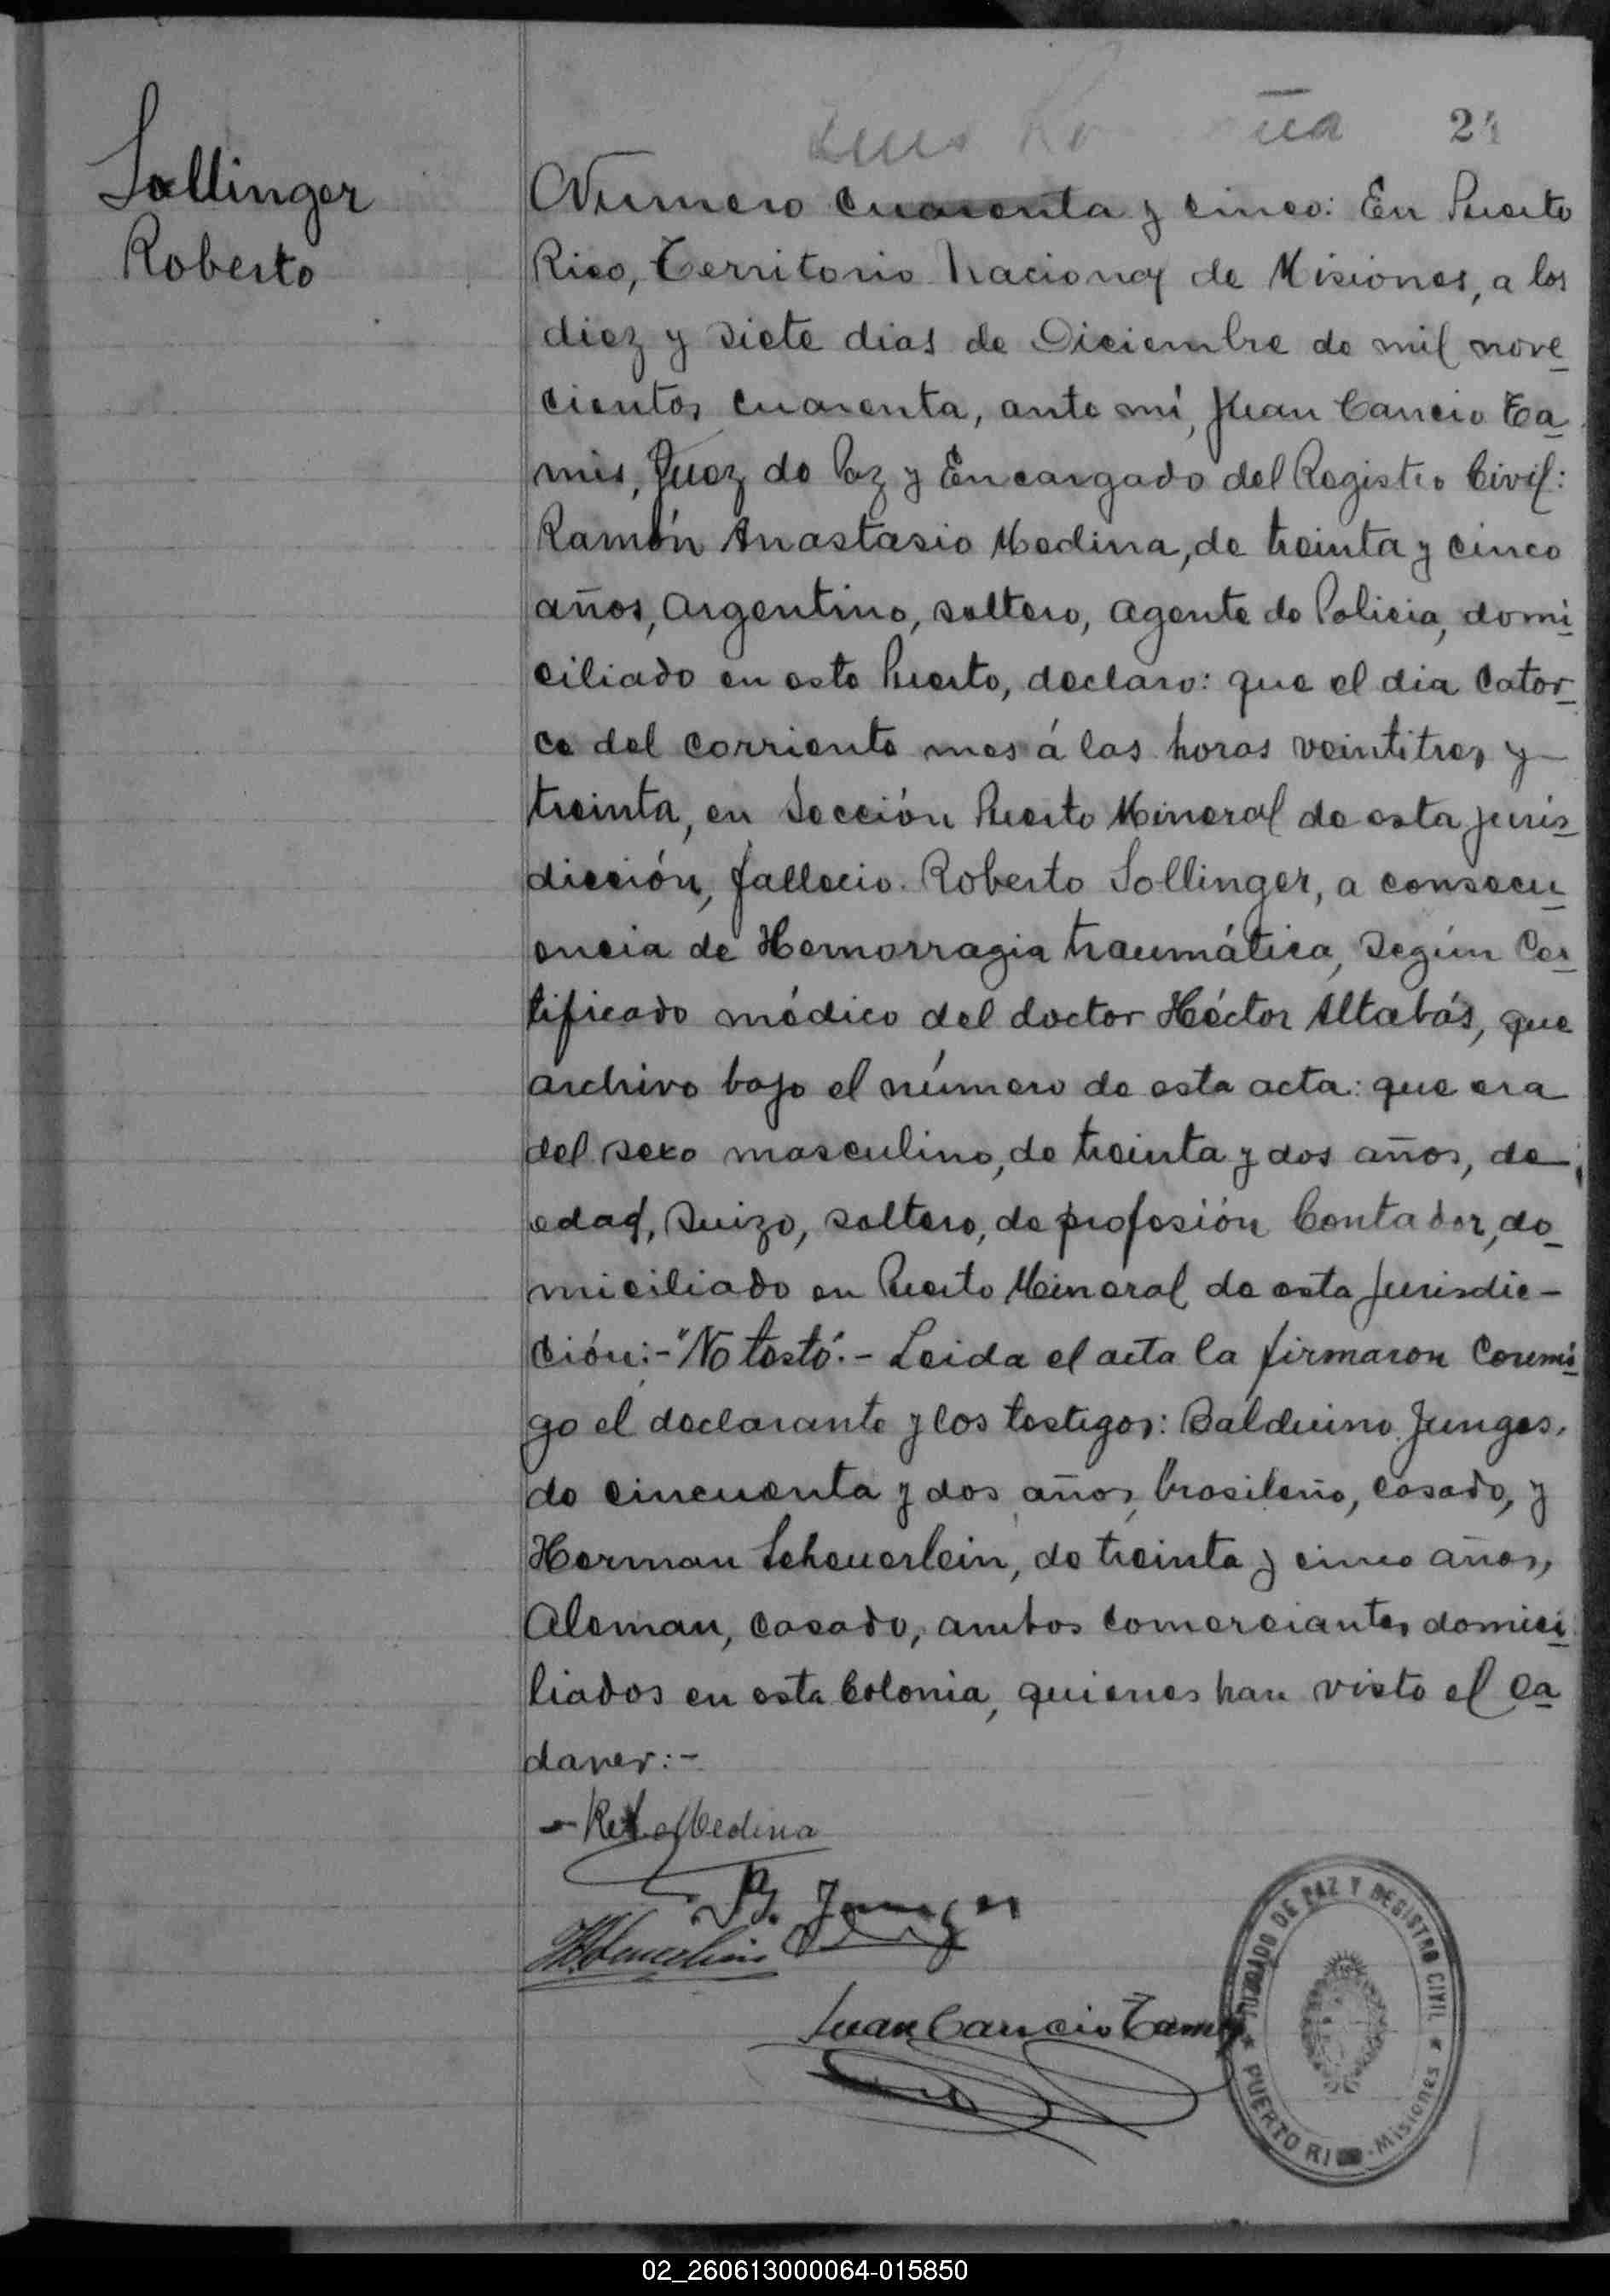 24
Sollinger
Roberto
Numero cuarenta y cinco: En Puerto
Rico, Territorio Nacional de Misiones, a los
diez y siete dias de Diciembre de mil nove
cientos cuarenta, ante mí, Juan Cancio Ta
mis, Juez de Paz y Encargado del Registro Civil:
Ramón Anastasio Medina, de treinta y cinco
años, Argentino, soltero, agente de Policia, domi
ciliado en este Puerto, declaro: que el dia cator
ce del corriente mes á las horas veintitres y—
treinta, en Sección Puerto Mineral de esta juris
dicción, fallecio Roberto Sollinger, a consecu
encia de Hemorragia traumática, según Cer
tificado médico del doctor Héctor Altabás, que
archivo bajo el número de esta acta: que era
del sexo masculino, de treinta y dos años, de
edad, Suizo, soltero, de profesión Contador, do
miciliado en Puerto Mineral de esta Jurisdic-
ción:-"No testó.- Leida el acta la firmaron conmi
go el declarante y los testigos: Balduino Junges,
de cincuenta y dos años, brasileño, casado, y
Herman Scheuerlein, de treinta y cinco años,
Aleman, casado, ambos comerciantes domici
liados en esta Colonia, quienes han visto el ca
daver:-
Medina
B. Junges
Juan Cancio Tamis
JUZGADO DE PAZ Y REGISTRO CIVIL
PUERTO RICO - Misiones
02_260613000064-015850